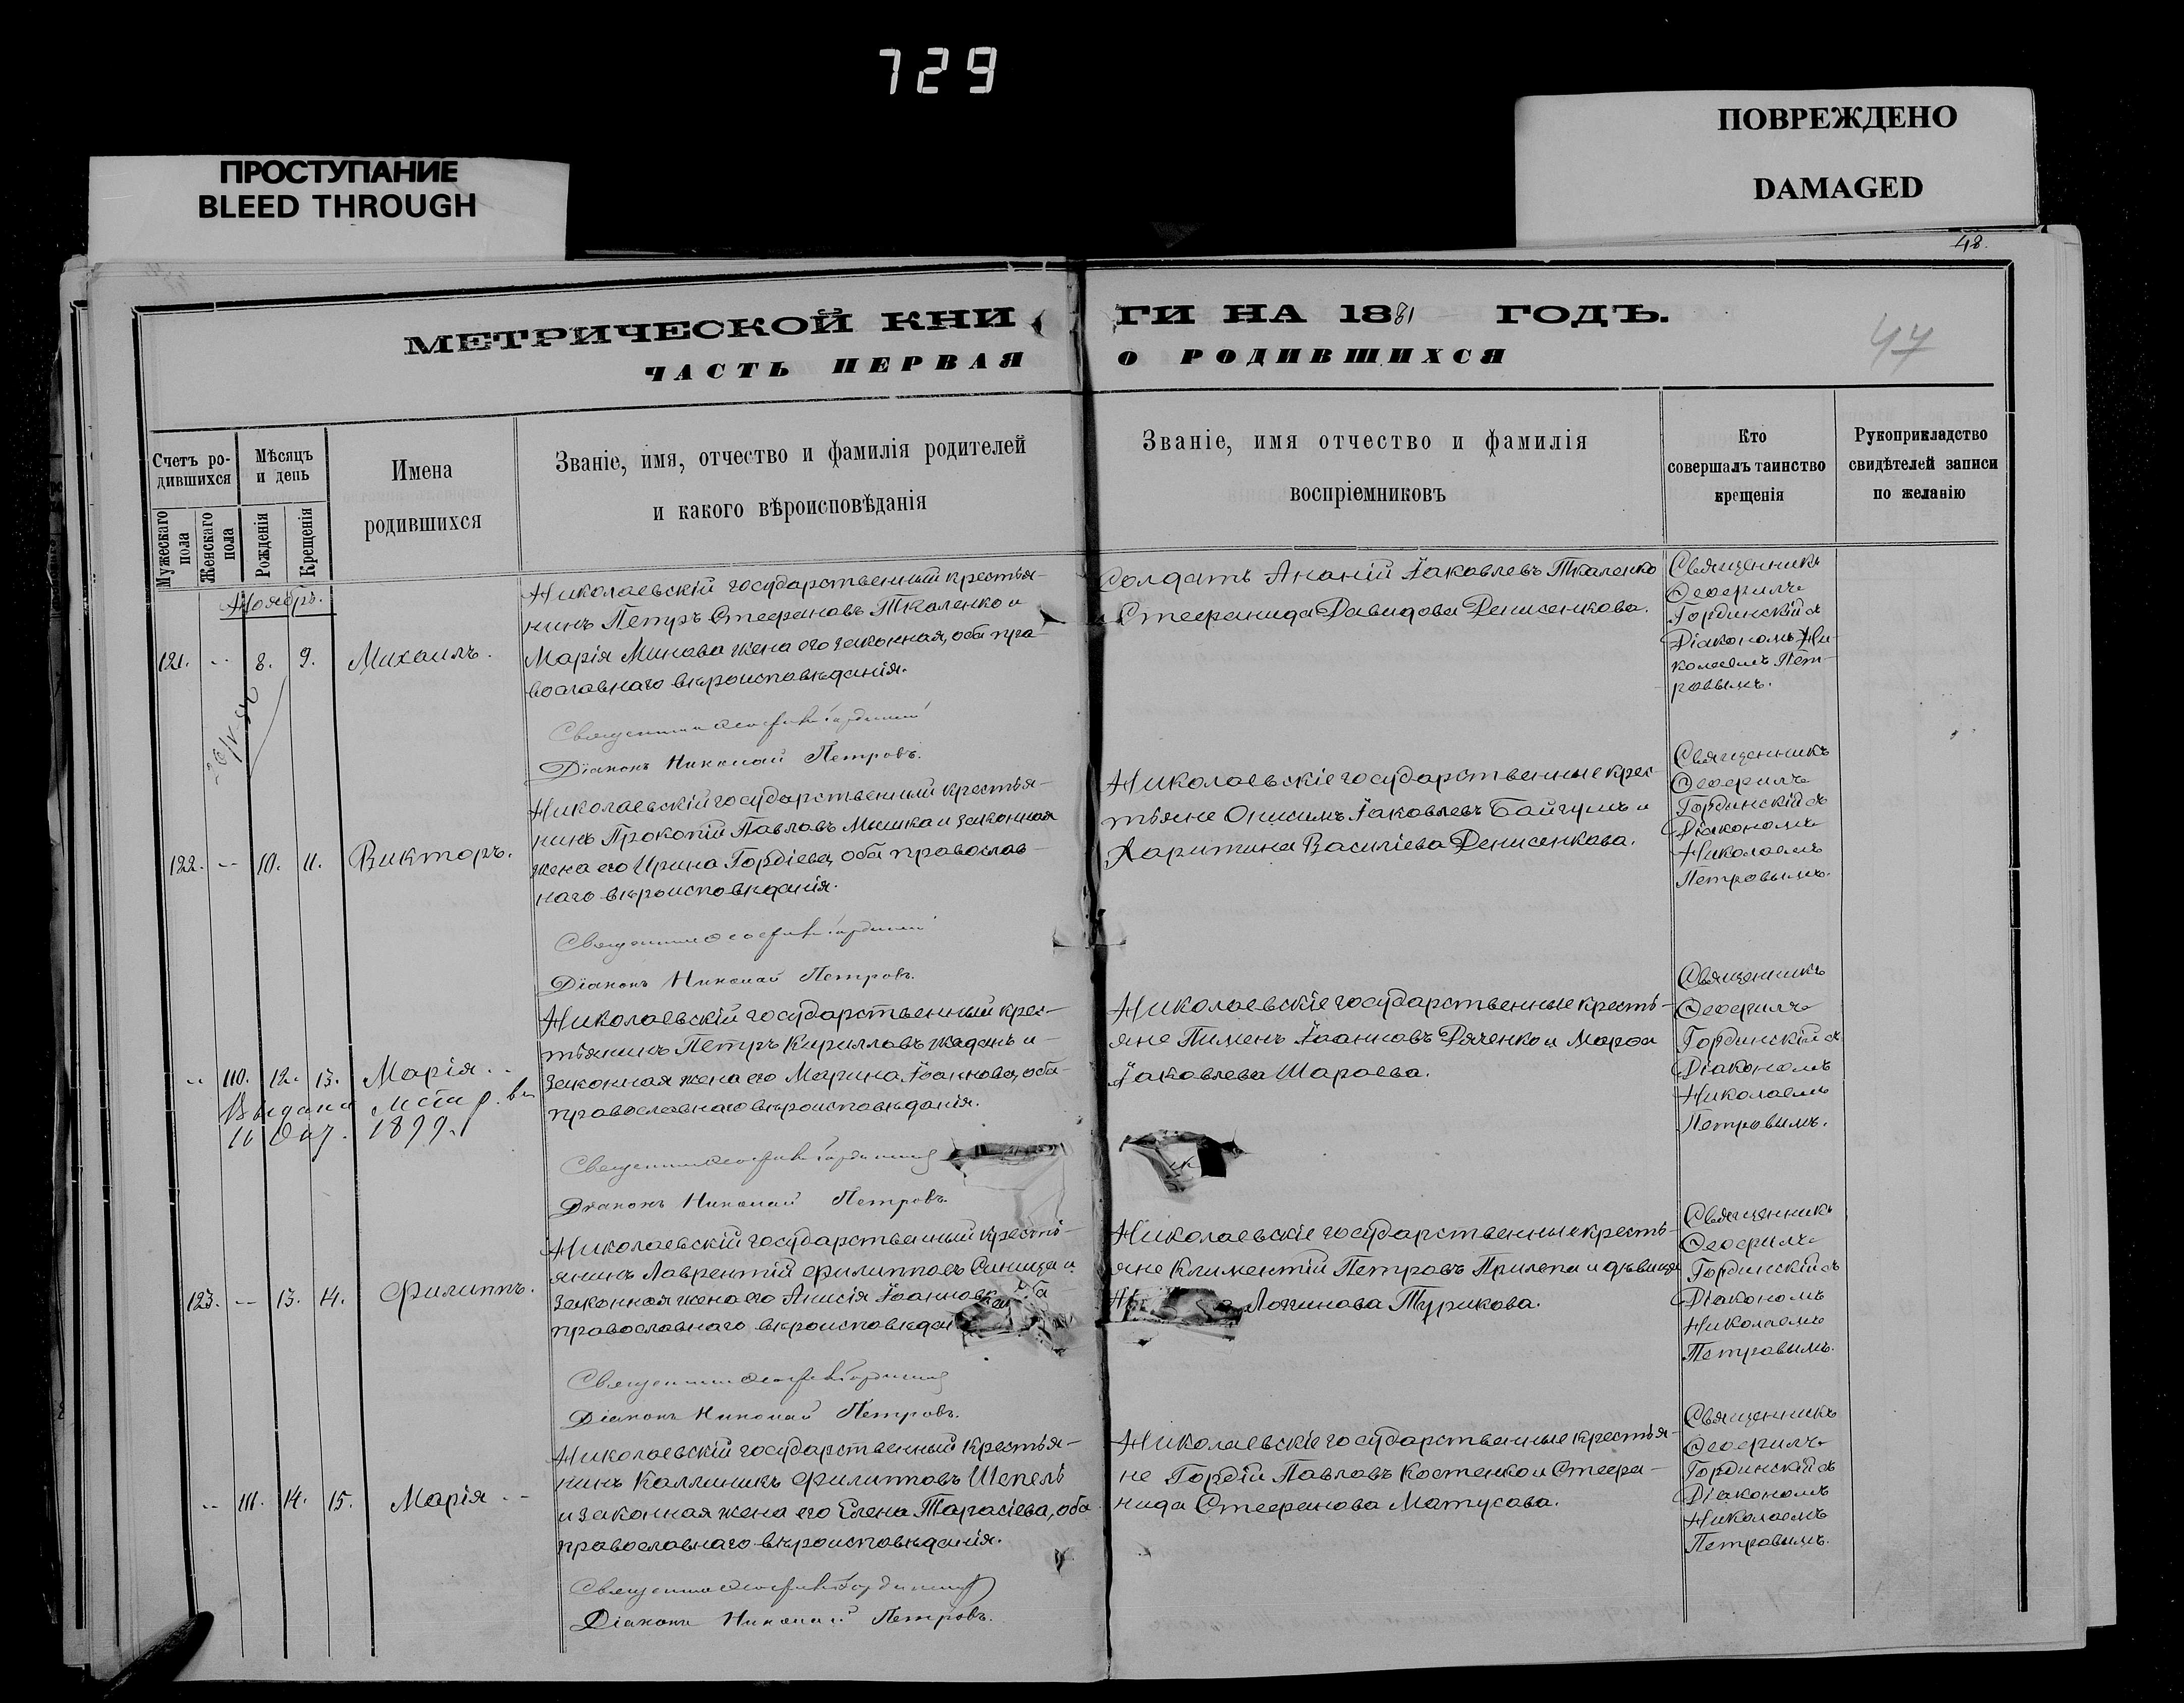 729
ПРОСТУПАНИЕ
BLEED THROUGH
ПОВРЕЖДЕНО
DAMAGED
48.
МЕТРИЧЕСКОЙ КНИ
ГИ НА 1881 ГОДЪ.
47
ЧАСТЬ ПЕРВАЯ
О РОДИВШИХСЯ
Счетъ ро-
дившихся
Мужескаго
пола
Женскаго
пола
Мѣсяцъ
и день
Рожденія
Крещенія
Имена
родившихся
Званіе, имя, отчество и фамилія родителей
и какого вѣроисповѣданія
Званіе, имя отчество и фамилія
воспріемниковъ
Кто
совершалъ таинство
крещенія
Рукоприкладство
свидѣтелей записи
по желанію
Ноябрь.
121. -- 8. 9. Михаилъ.
Николаевскій государственный крестья-
нинъ Петръ Стефановъ Ткаленко и
Марія Минова жена его законная, оба пра-
вославнаго вѣроисповѣданія.
Священникъ Ѳеофилъ Гординскій
Діаконъ Николай Петровъ.
Солдатъ Ананій Іаковлевъ Ткаленко
и Стефанида Давидова Денисенкова.
Священникъ
Ѳеофилъ
Гординскій съ
Діакономъ Ни-
колаемъ Пет-
ровымъ.
122. -- 10. 11. Викторъ.
Николаевскій государственный крестья-
нинъ Прокопій Павловъ Мышка и законная
жена его Ирина Гордіева, оба православ-
наго вѣроисповѣданія.
Священникъ Ѳеофилъ Гординскій
Діаконъ Николай Петровъ.
Николаевскіе государственные крес-
тьяне Онисимъ Іаковлевъ Байгушъ и
Харитина Василіева Денисенкова.
Священникъ
Ѳеофилъ
Гординскій съ
Діакономъ
Николаемъ
Петровымъ.
-- 110. 12. 13. Марія --
Выдана метр. вы
10 1899.
Николаевскій государственный крес-
тьянинъ Петръ Кирилловъ Жаданъ и
законная жена его Марина Іоаннова, оба
православнаго вѣроисповѣданія.
Священникъ Ѳеофилъ Гординскій
Діаконъ Николай Петровъ.
Николаевскіе государственные кресть-
яне Пименъ Іоанновъ Дяченко и Марѳа
Іаковлева Шараева.
Священникъ
Ѳеофилъ
Гординскій съ
Діакономъ
Николаемъ
Петровымъ.
123. -- 13. 14. Филиппъ.
Николаевскій государственный кресть-
янинъ Лаврентій Филипповъ Синица и
законная жена его Анисія Іоаннова оба
православнаго вѣроисповѣдан
Священникъ Ѳеофилъ Гординскій
Діаконъ Николай Петровъ.
Николаевскіе государственные кресть-
яне Климентій Петровъ Прилепа и дѣвица
Логинова Турикова.
Священникъ
Ѳеофилъ
Гординскій съ
Діакономъ
Николаемъ
Петровымъ.
-- 111. 14. 15. Марія --
Николаевскій государственный крестья-
нинъ Каллиникъ Филипповъ Шепель
и законная жена его Елена Тарасіева, оба
православнаго вѣроисповѣданія.
Священникъ Ѳеофилъ Гординскій
Діаконъ Николай Петровъ.
Николаевскіе государственные крестья-
не Гордій Павловъ Костенко и Стефа-
нида Стефанова Матусова.
Священникъ
Ѳеофилъ
Гординскій съ
Діакономъ
Николаемъ
Петровымъ.